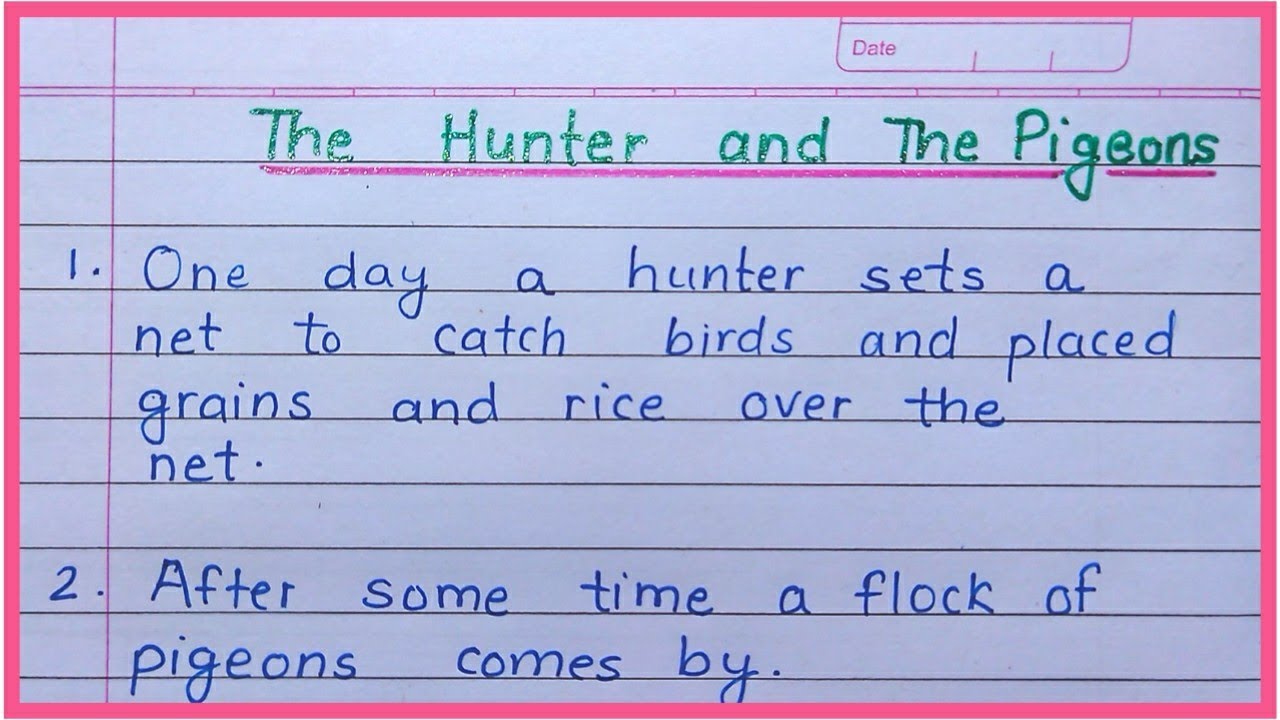 Date
The Hunter and The Pigeons
1. One day a hunter sets a
net to catch birds and placed
grains and rice over the
net.
2. After some time a flock of
pigeons comes by.